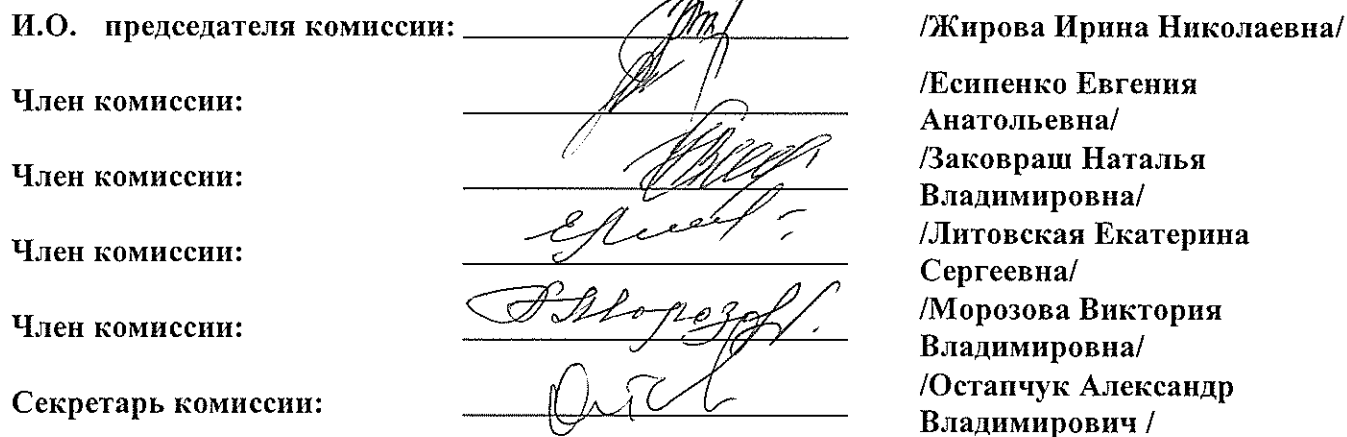 И.О. председателя комиссии: /Жирова Ирина Николаевна/
Член комиссии: /Есипенко Евгения
Анатольевна/
Член комиссии: /Заковраш Наталья
Владимировна/
Член комиссии: /Литовская Екатерина
Сергеевна/
Член комиссии: /Морозова Виктория
Владимировна/
Секретарь комиссии: /Остапчук Александр
Владимирович /